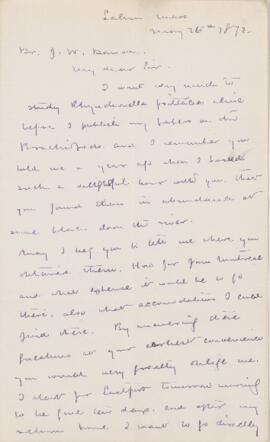 Salem Mass
May 26th 1872.
Dr. J. W. Dawson
My dear Sir.
I want very much to
study Rhynchonella psittacea alive
before I publish my papers on the
Brachiopods and I remember you
told me a year ago when I
such a delightful hour with you, that
you found them in abundance at
some place down the river.
May I beg you to tell me where you
obtained them. How far from Montreal
and what expense it would be to go
there, also what accomodations I could
find there. By answering these
questions at your earliest convenience
you would very greatly oblige me.
I start for Eastport tomorrow morning
to be gone ten days, and after my
return home I want to go directly